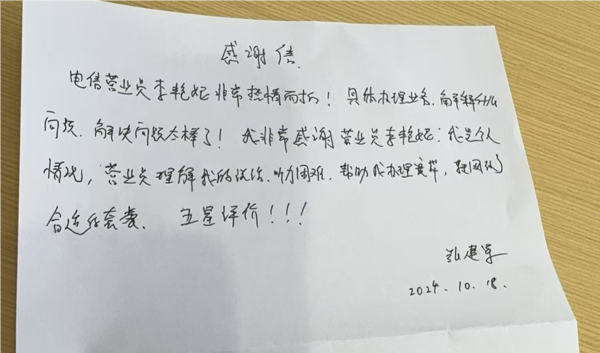 感谢信
电信营业员李艳妮非常热情而招！具体办理业务，解释什么
问题，解决问题太棒了！我非常感谢营业员李艳妮：我是个人
情况，营业员理解我的说话、听力困难，帮助我办理宽带，
合适任套餐、五星评价！！！
张建军
2024.10.18.